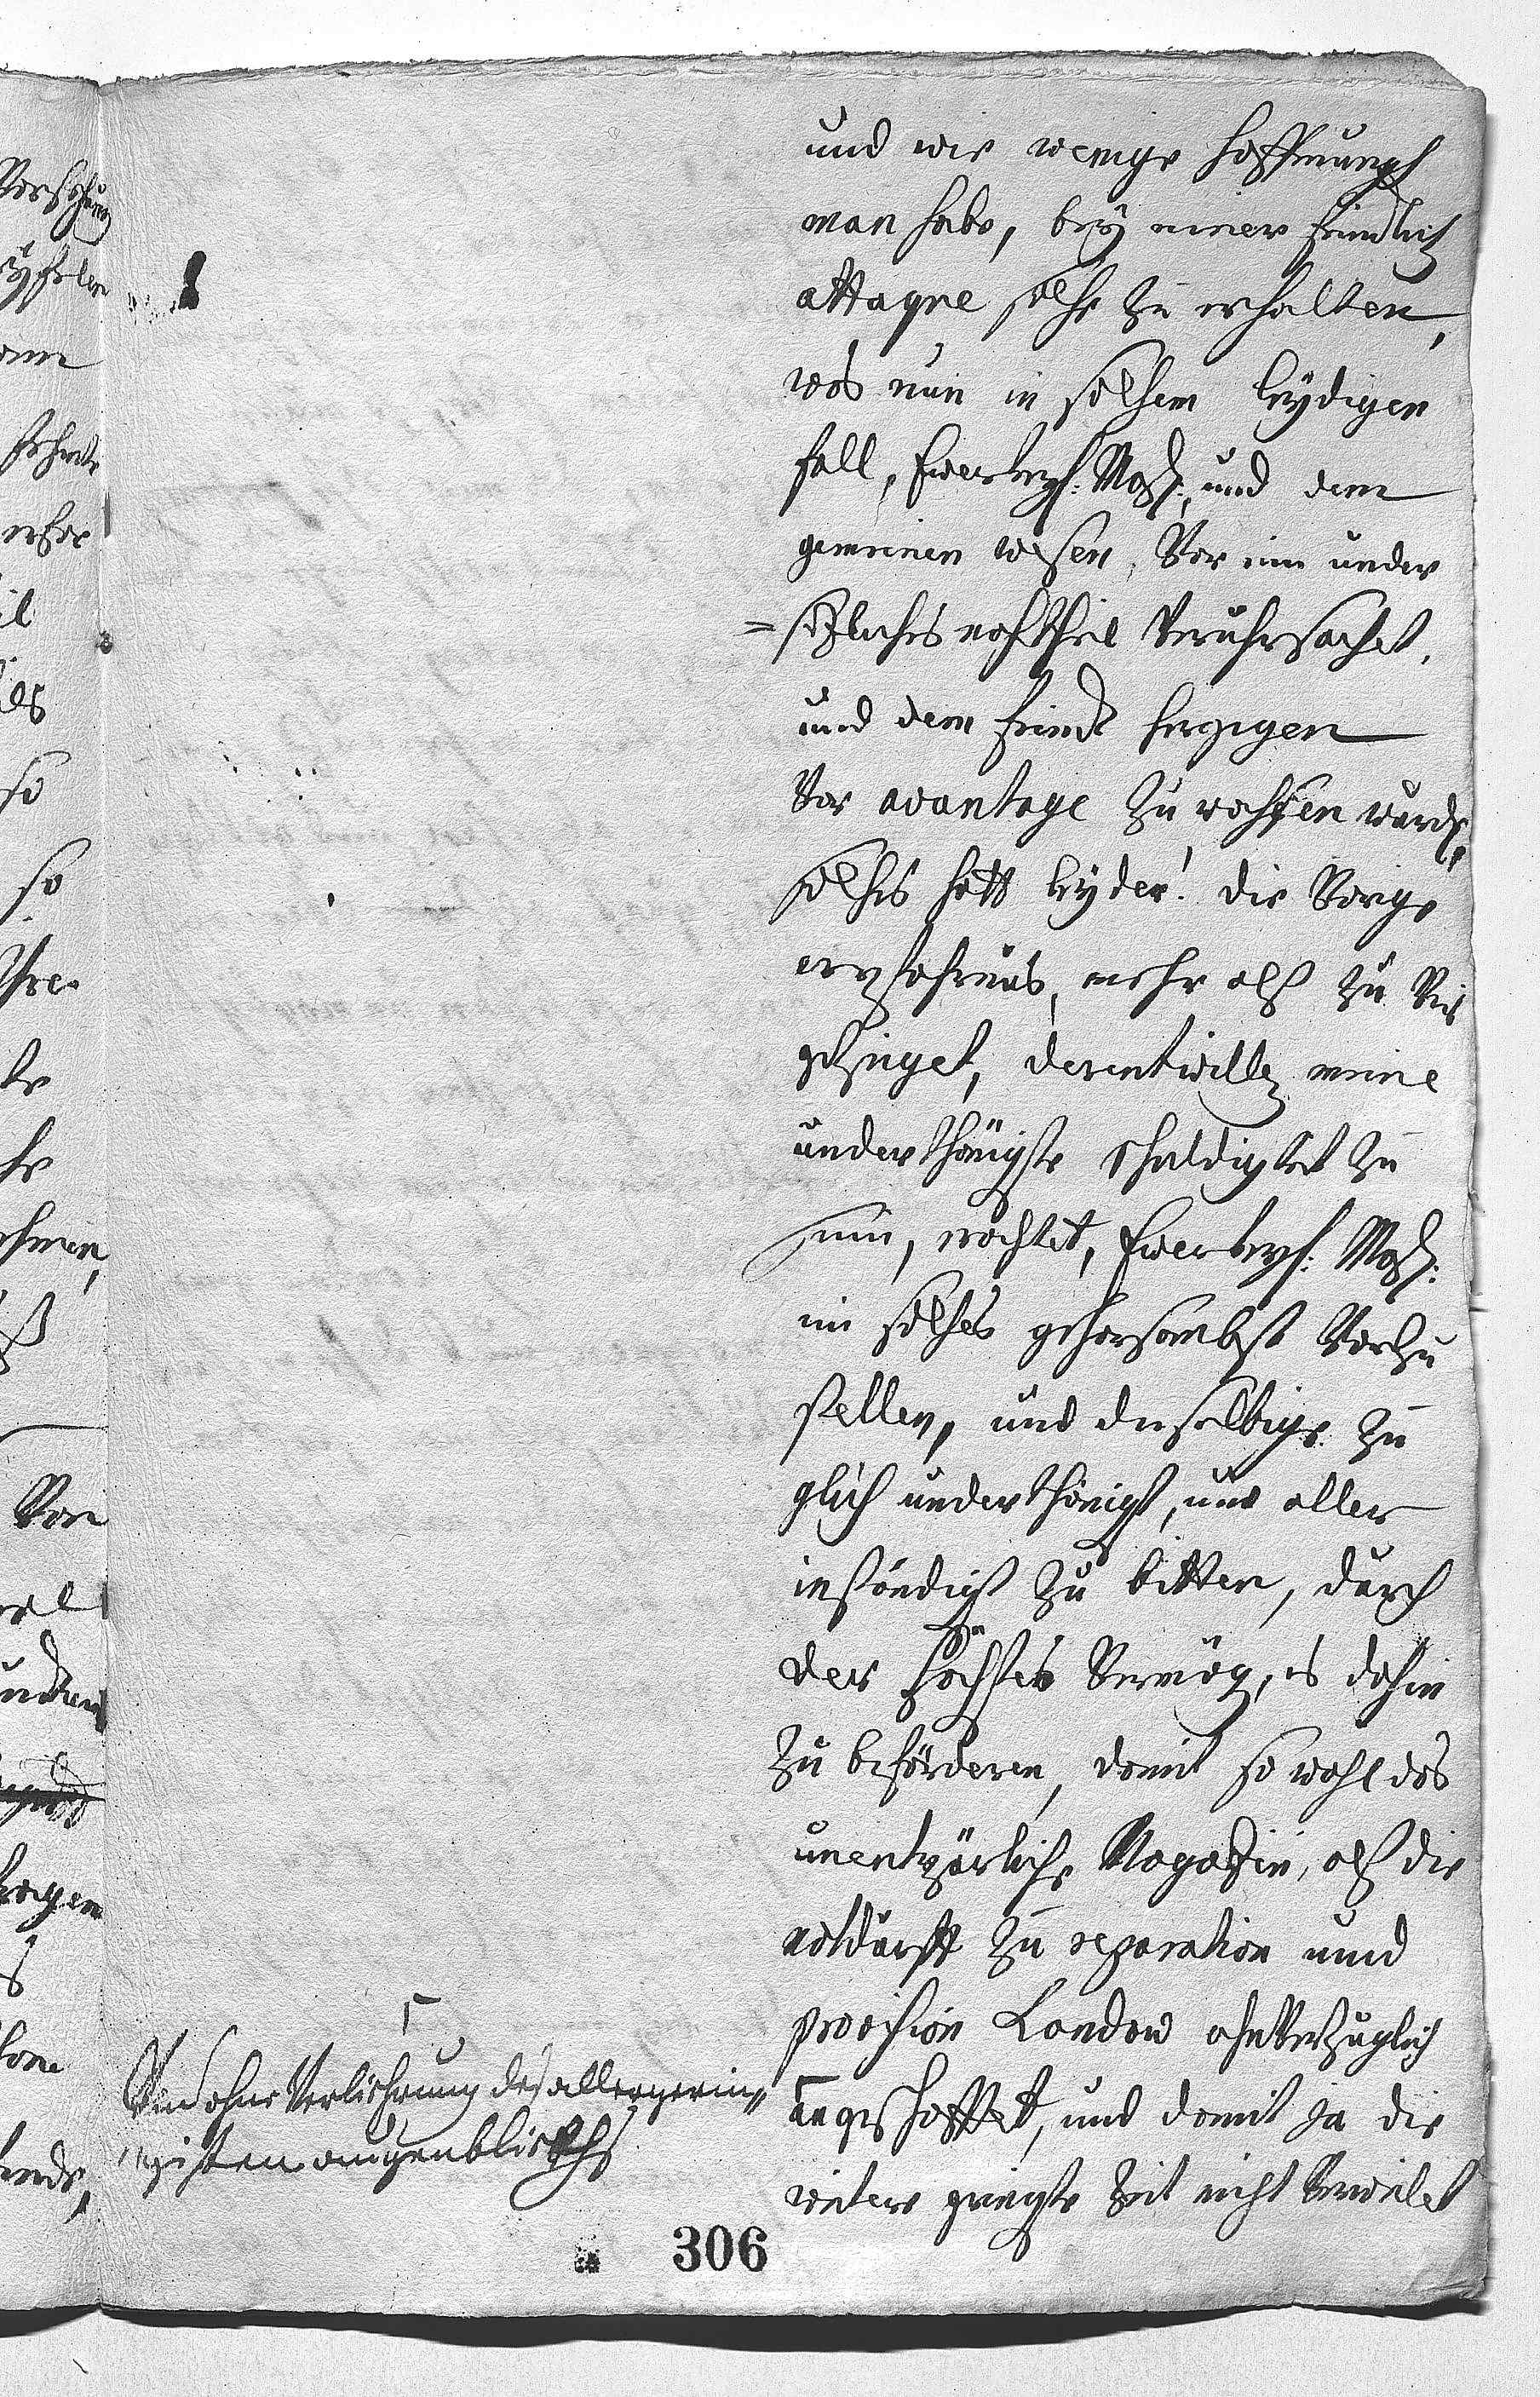 und wie wenige hoffnung
man habe, bey einer feindlich
attaque solche zu erhalten,
was nun in solchem leydigen
fall, Euer kays: May:, und dem
gemeinen wesen, Vor ein under
=sezliches nachtheil Veruhrsachet,
und dem feindt hergegen
Vor avantage zu wachsen wurde,
solches hatt leyder! die Vorige
erfahrnus, mehr alß zu Viel
gezeiget, derentwillen meine
underthönigste schuldigkeit zu
sein, erachtet, Euer kays: May:
ein solches gehorsambst Vorzu
stellen, und dieselbige zu
gleich underthönigst, und aller
inständigst zu bitten, durch
der höchstes Vermög, es dahin
zu beförderen, damit so wohl das
unentpärliche Magazin, alß die
notdurfft zu reparation und
provision Landau ohnVerzuglich
angeschaffet, und damit ja die
weitere geringste Zeit nicht Verweilet
Und ohne Verliehrung des allergerin„
„gisten augenblickhs
306